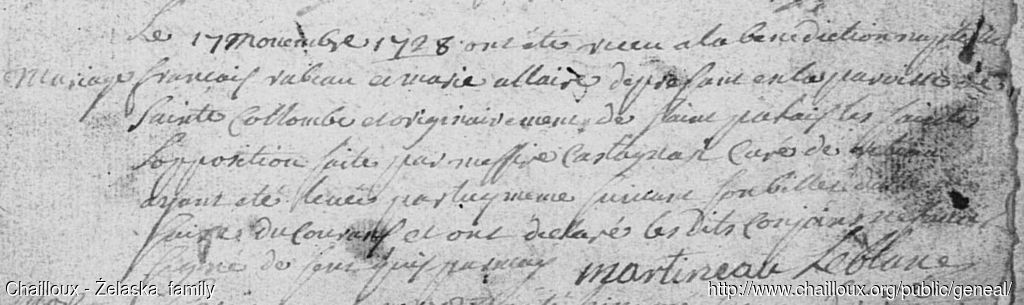 Le 17 novembre 1728 ont été receu a la benediction nuptialle
Mariage francois rabeau et marie allaire de presant en la paroisse de
Sainte Collombe et originairement de saint palais les saintes
l'opposition faite par messire Castagnar Curé de
ayant été levée par luy meme suivant son billet
du Courant et ont déclaré les dits conjoins ne
signé de ce martineau Leblanc
Chailloux - Żelaska family
http://www.chailloux.org/public/geneal/